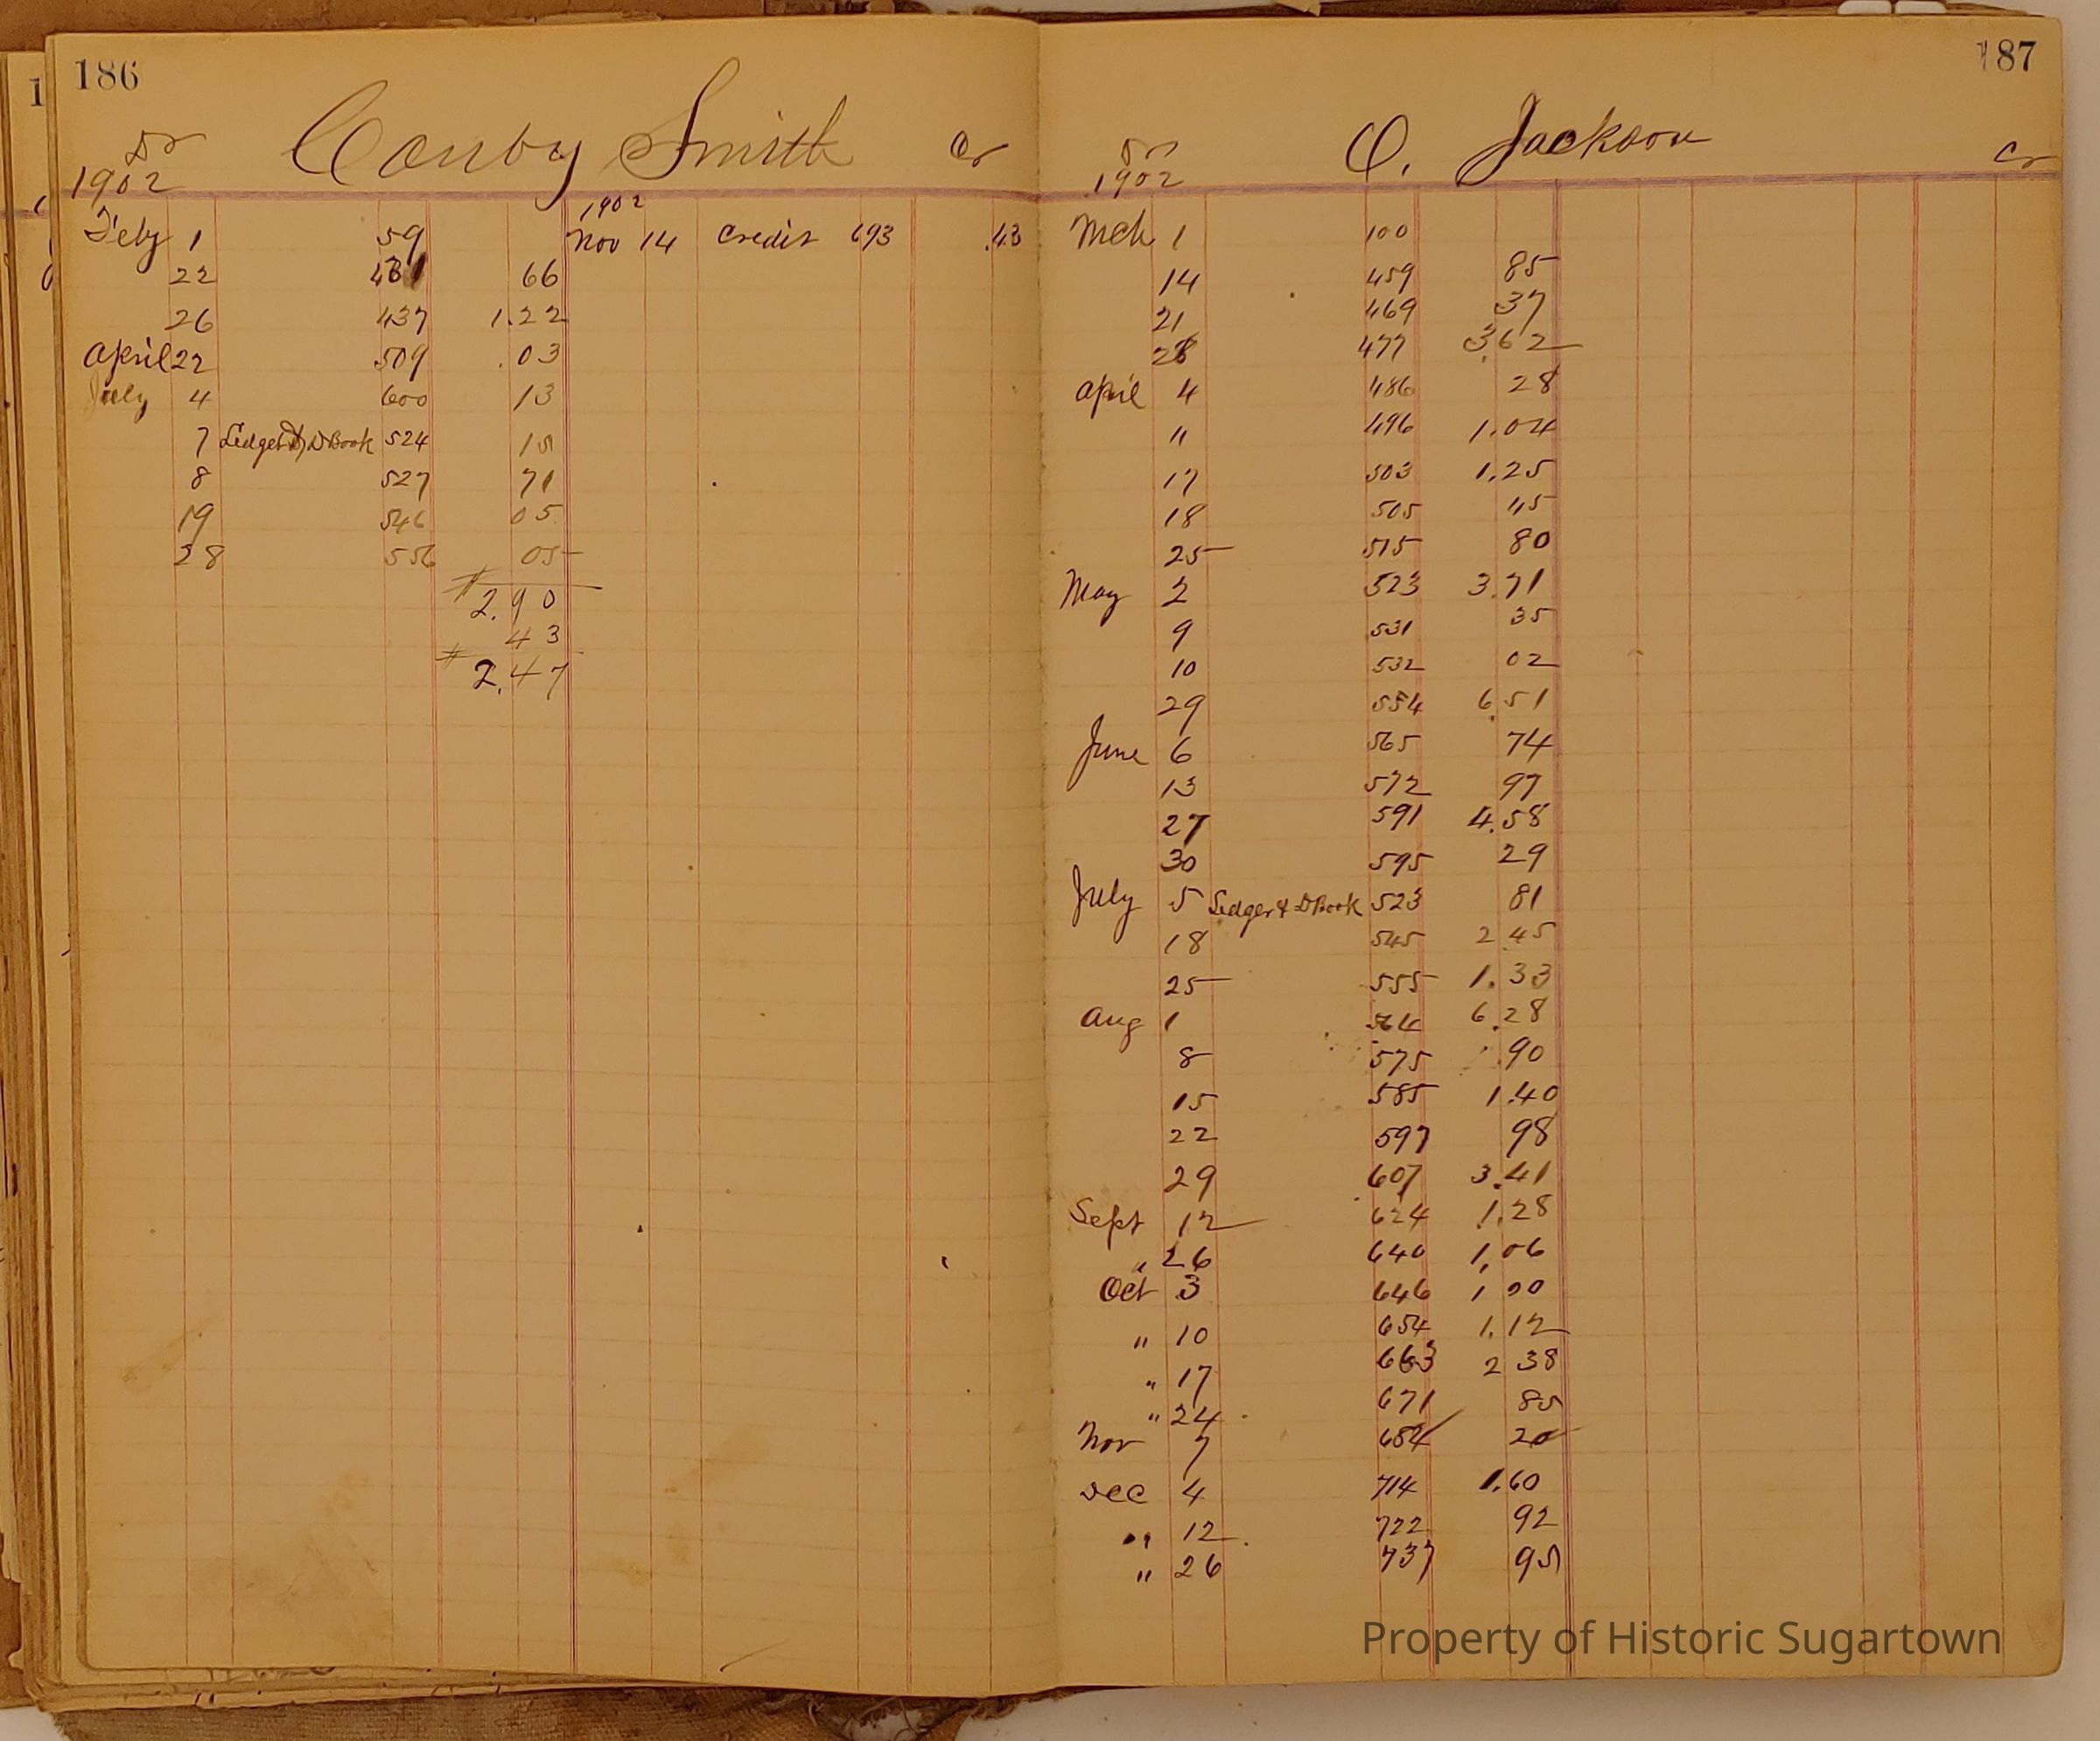 186
Dr Conby Smith Cr
1902
1902
Feby 1 59 Nov 14 Credit 693 .43
22 431 66
26 437 1.22
April 22 509 .03
July 4 600 13
7 Ledger & D Book 524 15
8 527 71
19 546 05
28 556 05
# 2.90
43
# 2.47
187
Dr O. Jackson Cr
1902
Mch 1 100
14 459 85
21 469 37
28 477 3.62
April 4 486 28
11 496 1.04
17 503 1.25
18 505 45
25 515 80
May 2 523 3.71
9 531 35
10 532 02
29 554 6.51
June 6 565 74
13 572 97
27 591 4.58
30 595 29
July 5 Ledger & D Book 523 81
18 545 2 45
25 555 1.33
Aug 1 564 6.28
8 575 .90
15 585 1.40
22 597 98
29 607 3.41
Sept 12 624 1.28
" 26 640 1.06
Oct 3 646 1 00
" 10 654 1.12
" 17 663 2 38
" 24 671 85
Nov 7 684 20
Dec 4 714 1.60
" 12 722 92
" 26 737 95
Property of Historic Sugartown